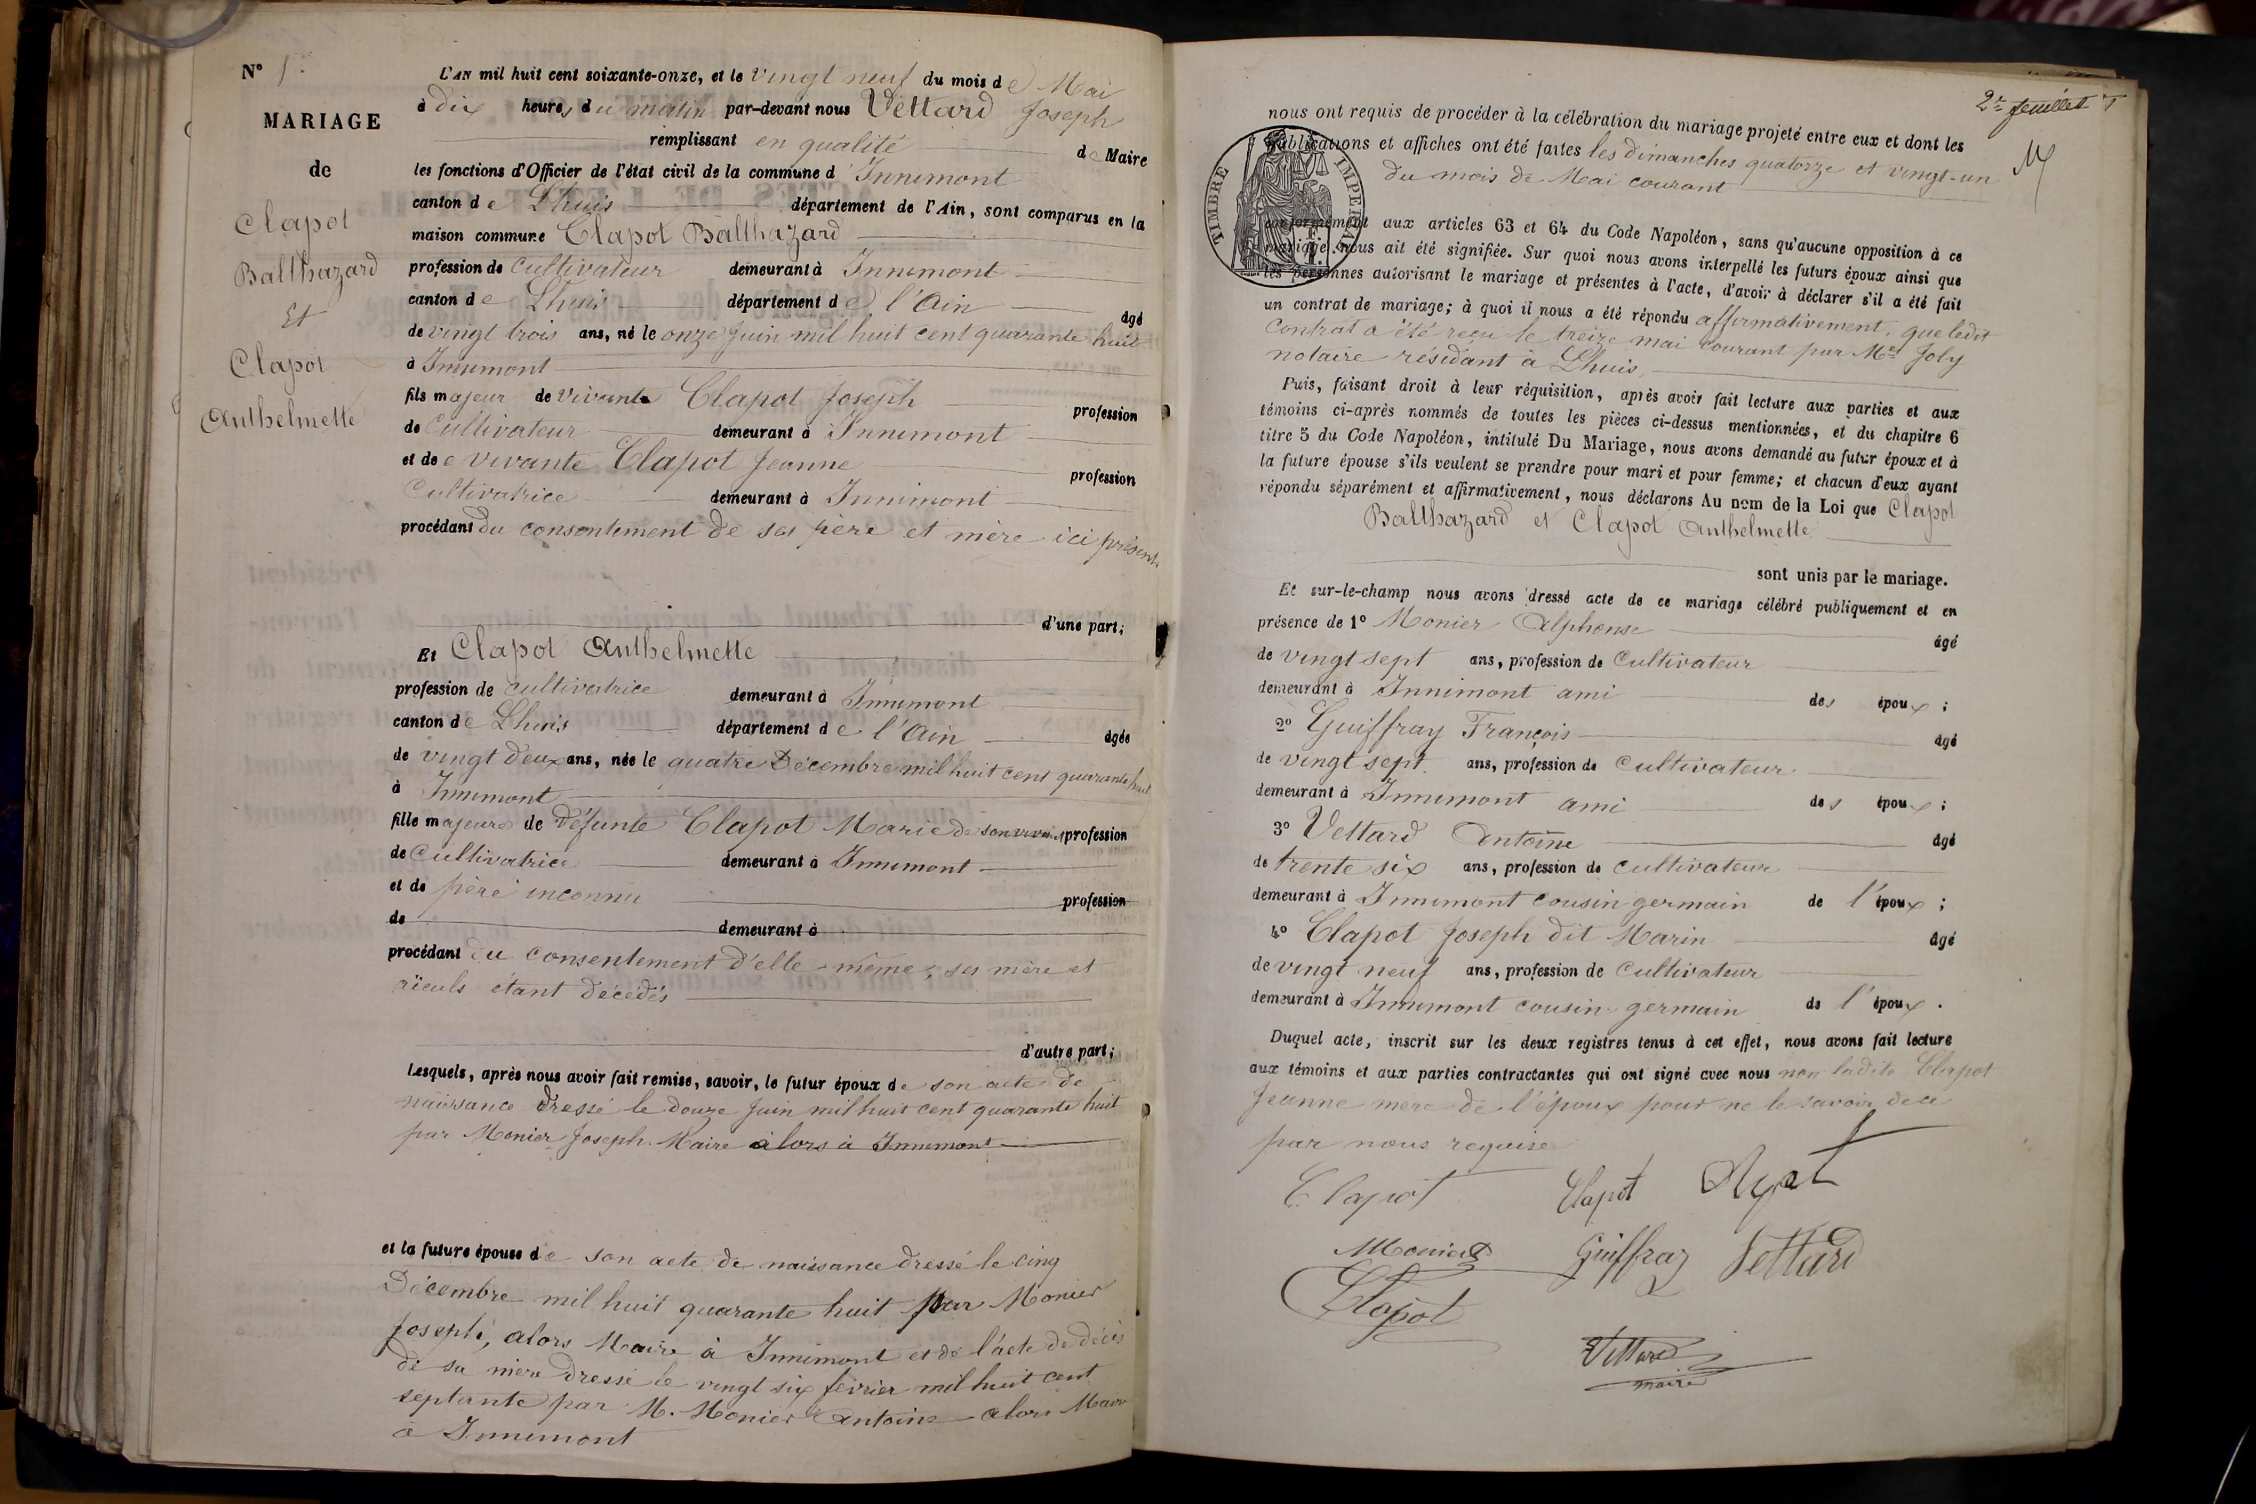 N° 1er
MARIAGE
de
Clapot
Balthazard
Et
Clapot
Anthelmette
L'AN mil huit cent soixante-onze, et le vingt neuf du mois de Mai
à dix heures du matin par-devant nous Vettard Joseph
remplissant en qualité de Maire
les fonctions d'Officier de l'état civil de la commune d'Innimont
canton de Lhuis département de l'Ain, sont comparus en la
maison commune Clapot Balthazard
profession de cultivateur demeurant à Innimont
canton de Lhuis département de l'Ain âgé
de vingt trois ans, né le onze Juin mil huit cent quarante huit
à Innimont
fils majeur de vivante Clapot Joseph profession
de Cultivateur demeurant à Innimont
et de e vivante Clapot Jeanne profession
Cultivatrice demeurant à Innimont
procédant du consentement de ses père et mère ici présents
d'une part;
Et Clapot Anthelmette
profession de cultivatrice demeurant à Innimont
canton de Lhuis département de l'Ain âgée
de vingt deux ans, née le quatre Décembre mil huit cent quarante huit
à Innimont
fille majeure de défunte Clapot Marie de son vivant profession
de Cultivatrice demeurant à Innimont
et de père inconnu profession
de demeurant à
procédant du consentement d'elle-même, ses mère et
aïeuls étant décédés
d'autre part;
Lesquels, après nous avoir fait remise, savoir, le futur époux de son acte de
naissance dressé le douze Juin mil huit cent quarante huit
par Monier Joseph Maire alors à Innimont
et la future épouse de son acte de naissance dressé le cinq
Décembre mil huit quarante huit par Monier
Joseph, alors Maire à Innimont et de l'acte de décès
de sa mère dressé le vingt six février mil huit cent
septante par M. Monier Antoine alors Maire
à Innimont
2e feuillet
nous ont requis de procéder à la célébration du mariage projeté entre eux et dont les
publications et affiches ont été faites les dimanches quatorze et vingt-un
du mois de Mai courant
TIMBRE IMPERIAL
conformément aux articles 63 et 64 du Code Napoléon, sans qu'aucune opposition à ce
mariage nous ait été signifiée. Sur quoi nous avons interpellé les futurs époux ainsi que
les personnes autorisant le mariage et présentes à l'acte, d'avoir à déclarer s'il a été fait
un contrat de mariage; à quoi il nous a été répondu affirmativement, que ledit
contrat a été reçu le treize mai courant par Me Joly
notaire résidant à Lhuis
Puis, faisant droit à leur réquisition, après avoir fait lecture aux parties et aux
témoins ci-après nommés de toutes les pièces ci-dessus mentionnées, et du chapitre 6
titre 5 du Code Napoléon, intitulé Du Mariage, nous avons demandé au futur époux et à
la future épouse s'ils veulent se prendre pour mari et pour femme; et chacun d'eux ayant
répondu séparément et affirmativement, nous déclarons Au nom de la Loi que Clapot
Balthazard et Clapot Anthelmette
sont unis par le mariage.
Et sur-le-champ nous avons dressé acte de ce mariage célébré publiquement et en
présence de 1° Monier Alphonse âgé
de vingt sept ans, profession de Cultivateur
demeurant à Innimont ami des époux;
2° Guiffray François âgé
de vingt sept ans, profession de Cultivateur
demeurant à Innimont ami des époux;
3° Vettard Antoine âgé
de trente six ans, profession de cultivateur
demeurant à Innimont cousin germain de l'époux;
4° Clapot Joseph dit Marin âgé
de vingt neuf ans, profession de Cultivateur
demeurant à Innimont cousin germain de l'époux.
Duquel acte, inscrit sur les deux registres tenus à cet effet, nous avons fait lecture
aux témoins et aux parties contractantes qui ont signé avec nous non ladite Clapot
Jeanne mère de l'époux pour ne le savoir de ce
par nous requise
Clapot Clapot
Monier Guiffray Vettard
Clapot
Vettard
maire